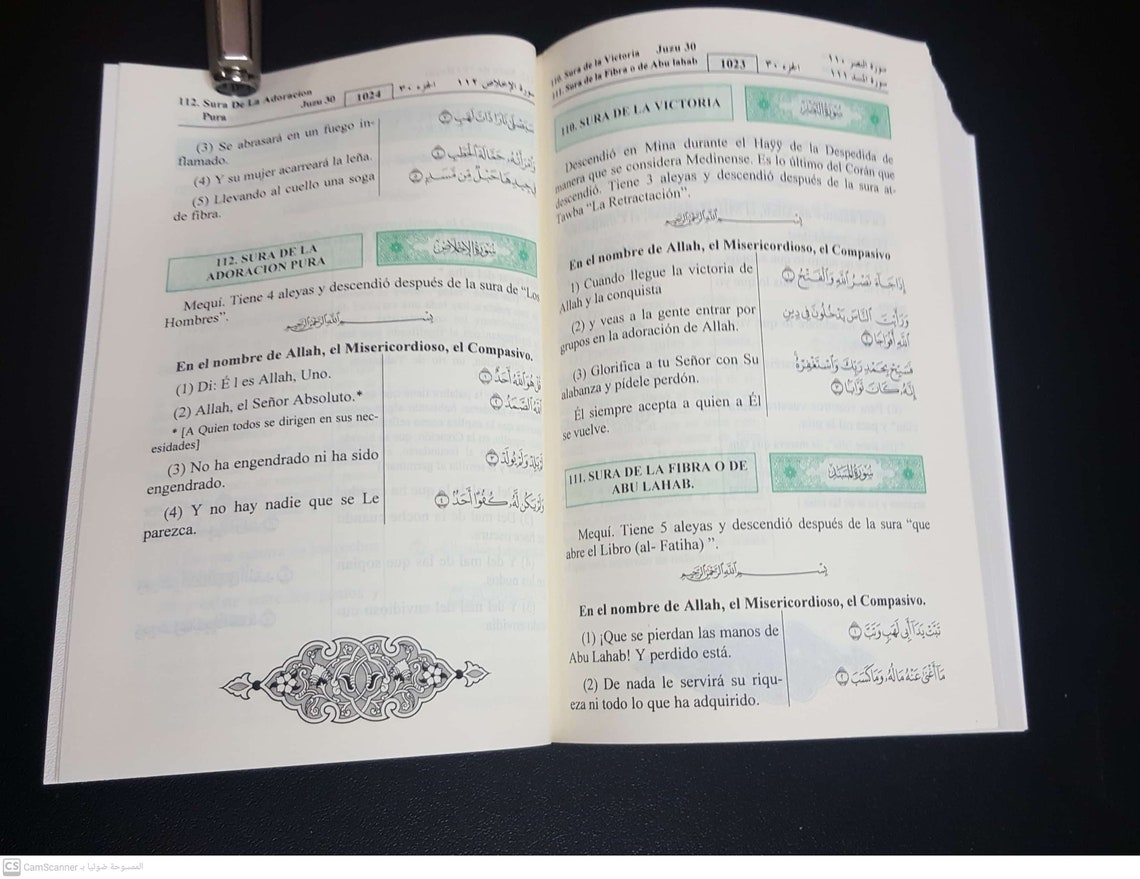 110. Sura de la Victoria Juzu 30
111. Sura de la Fibra o de Abu lahab
1023
الجزء ٣٠
سورة النصر ١١٠
سورة المسد ١١١
110. SURA DE LA VICTORIA
سُورَةُ النَّصْرِ
Descendió en Mina durante el Hayy de la Despedida de
manera que se considera Medinense. Es lo último del Corán que
descendió. Tiene 3 aleyas y descendió después de la sura at-
Tawba “La Retractación”.
بِسْمِ اللَّهِ الرَّحْمَٰنِ الرَّحِيمِ
En el nombre de Allah, el Misericordioso, el Compasivo
1) Cuando llegue la victoria de
Allah y la conquista
إِذَا جَاءَ نَصْرُ اللَّهِ وَالْفَتْحُ ١
(2) y veas a la gente entrar por
grupos en la adoración de Allah.
وَرَأَيْتَ النَّاسَ يَدْخُلُونَ فِي دِينِ
اللَّهِ أَفْوَاجًا ٢
(3) Glorifica a tu Señor con Su
alabanza y pídele perdón.
Él siempre acepta a quien a Él
se vuelve.
فَسَبِّحْ بِحَمْدِ رَبِّكَ وَاسْتَغْفِرْهُ
إِنَّهُ كَانَ تَوَّابًا ٣
111. SURA DE LA FIBRA O DE
ABU LAHAB.
سُورَةُ المَسَدِ
Mequí. Tiene 5 aleyas y descendió después de la sura “que
abre el Libro (al- Fatiha) ”.
بِسْمِ اللَّهِ الرَّحْمَٰنِ الرَّحِيمِ
En el nombre de Allah, el Misericordioso, el Compasivo.
(1) ¡Que se pierdan las manos de
Abu Lahab! Y perdido está.
تَبَّتْ يَدَا أَبِي لَهَبٍ وَتَبَّ ١
(2) De nada le servirá su riqu-
eza ni todo lo que ha adquirido.
مَا أَغْنَىٰ عَنْهُ مَالُهُ وَمَا كَسَبَ ٢
112. Sura De La Adoracion
Pura
Juzu 30
1024
الجزء ٣٠
سورة الإخلاص ١١٢
(3) Se abrasará en un fuego in-
flamado.
سَيَصْلَىٰ نَارًا ذَاتَ لَهَبٍ ٣
(4) Y su mujer acarreará la leña.
وَامْرَأَتُهُ حَمَّالَةَ الْحَطَبِ ٤
(5) Llevando al cuello una soga
de fibra.
فِي جِيدِهَا حَبْلٌ مِّن مَّسَدٍ ٥
112. SURA DE LA
ADORACION PURA
سُورَةُ الإِخْلَاصِ
Mequí. Tiene 4 aleyas y descendió después de la sura de “Los
Hombres”.
بِسْمِ اللَّهِ الرَّحْمَٰنِ الرَّحِيمِ
En el nombre de Allah, el Misericordioso, el Compasivo.
(1) Di: É l es Allah, Uno.
قُلْ هُوَ اللَّهُ أَحَدٌ ١
(2) Allah, el Señor Absoluto.*
اللَّهُ الصَّمَدُ ٢
* [A Quien todos se dirigen en sus nec-
esidades]
(3) No ha engendrado ni ha sido
engendrado.
لَمْ يَلِدْ وَلَمْ يُولَدْ ٣
(4) Y no hay nadie que se Le
parezca.
وَلَمْ يَكُن لَّهُ كُفُوًا أَحَدٌ ٤
CS CamScanner الممسوحة ضوئيا بـ